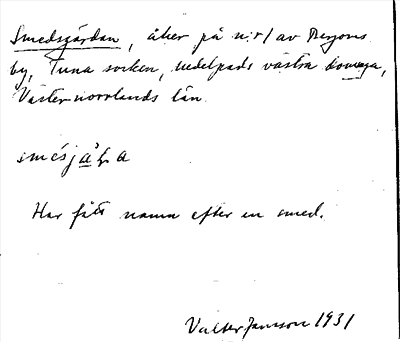 Smedsgårdan, åker på nr 1 av Bergoms
by, Tuna socken, Medelpads västra domsaga,
Västernorrlands län.
Har fått namn efter en smed.
Valter Jansson 1931